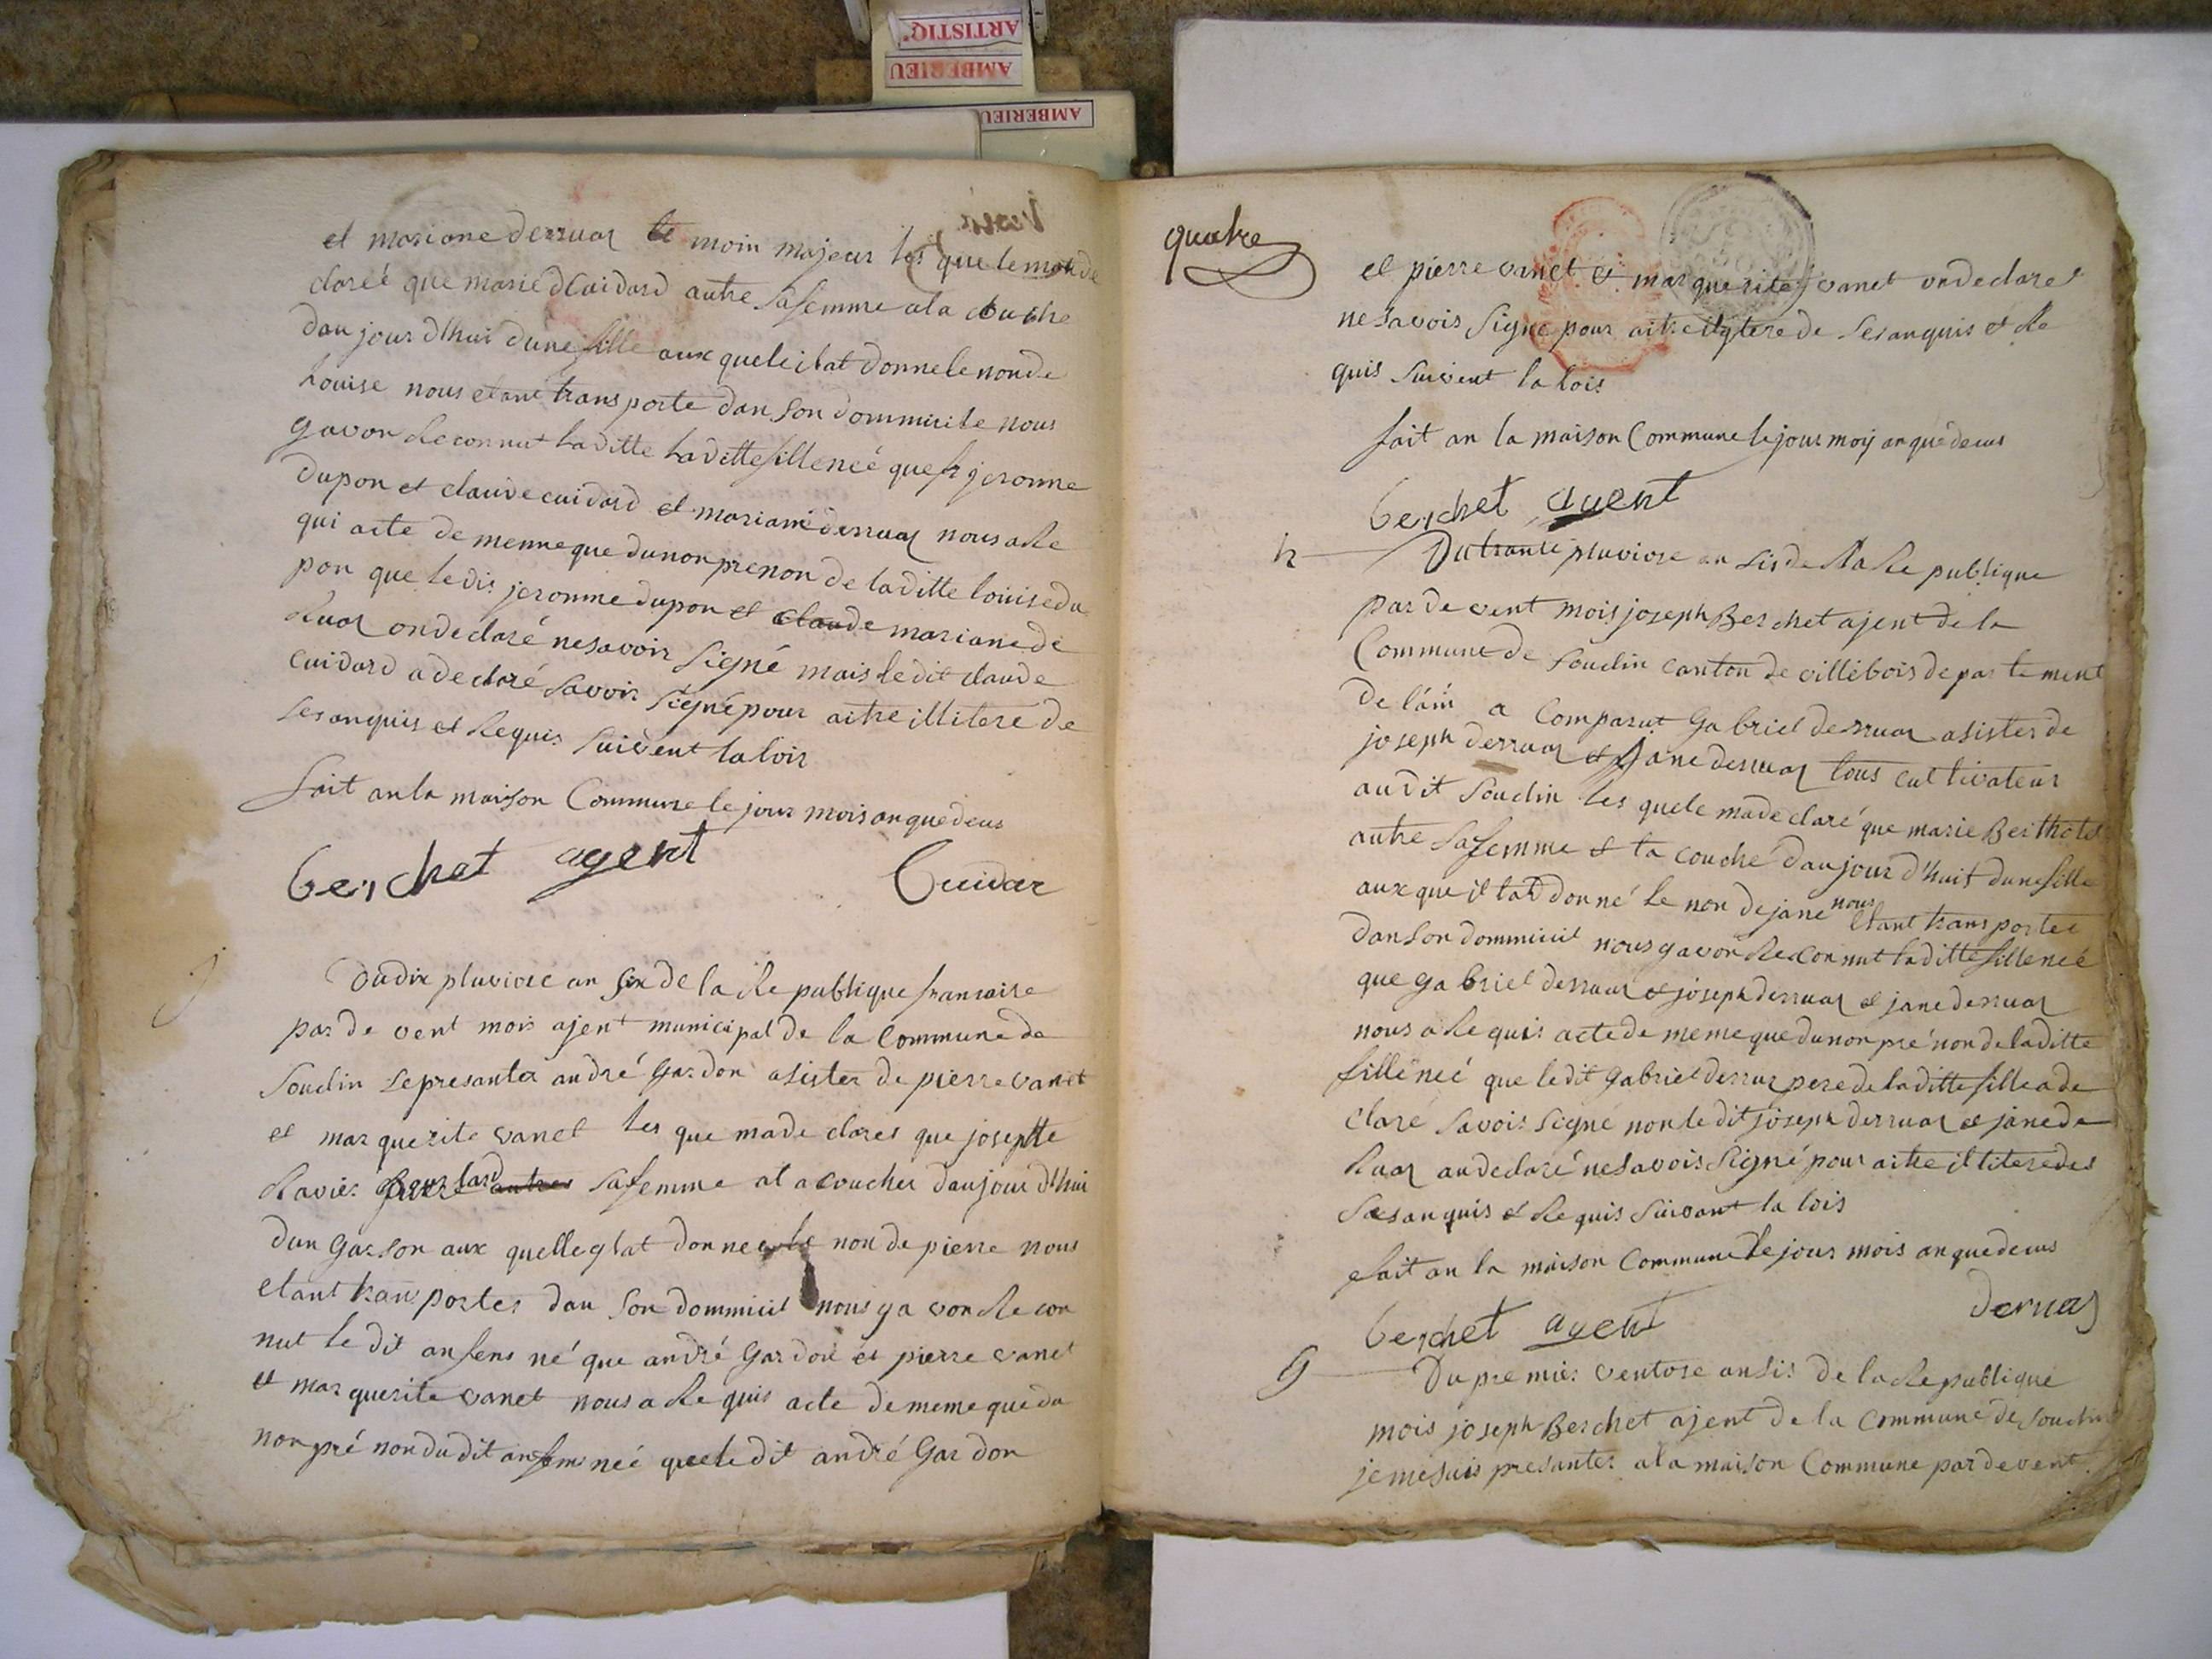 ARTISTIQ.
AMBERIEU
AMBERIEU
et mariane derruaz te moin majeur les que lemon de
claréé que marie dCuidard autre safemme ala couche
dau jour d'hui dunefille aux quele ilat donnelenonde
Louise nous etant transporte dan son dommicile nous
yavon Reconnut Laditte Ladittefilleneé que jeromme
dupon et claudecuidard et mariane derruaz nous a Re
qui acte de memmeque dunonprenon de laditte louise du
pon que ledis jeromme dupon et claude mariane de
Ruaz ondeclaré nesavoir Signé mais ledit claude
Cuidard adeclaré Savoir Signé pour aitre illitere de
sesanquis et Requis Suivent la lois
fait anla maison Commune le jour mois anquedeus
berchet agent
Cuidar
Dudix pluviose an six de la Republique fransaise
par de vent mois ajent municipal de la Commune de
Soudin sepresanter andré Gardon asister de pierre vanet
et marquerite vanet les que made clares que josepte
Ravier autres safemme at acoucher daujour d'hui
dun Garson aux quelle ylat donne le non de pierre nous
etant transporter dan son dommicil nous ya von Recon
nut le dit anfens né que andré Gardon et pierre vanet
et marquerite vanet nous a Requis acte dememe que du
non pré non dudit anfens neé queledit andré Gardon
quatre
et pierre vanet et marquerite vanet ondeclaret
ne savois Signe pour aitre ilytere de sesanquis et Re
quis Suivent la lois
fait an la maison Commune lejour moy anquédeus
berchet agent
Dutrante pluviose an sis de la Republique
par de vent mois joseph Berchet ajent de la
Commune de Soudin canton de villebois de par tement
de l'ain a Comparut Gabriel derruaz asister de
joseph derruaz et Jane derruaz tous cultivateur
audit Soudin les quele madeclaré que marie Berthelet
autre safemme et la couché daujour d'huit dunefille
auxque il lat donné le non dejane nous etant transporter
danson dommicil nous yavon Reconnut ladittefilleneé
que gabriel derruaz et joseph derruaz et jane derruaz
nous a Requis acte de meme que dunon pré non deladitte
filleneé que ledit gabriel derruz pere de laditte fille ade
claré savoir signé non le dit joseph derruaz et jane de
Ruaz andeclaré nesavois signé pour aitre illiteredes
Sesanquis et Requis suivant la lois
fait an la maison Commune le jour mois anquedeus
berchet agent
deruaz
9
Du premier ventose ansis de la Republique
mois joseph Berchet ajent de la Commune de Soudin
jemesuis presanter ala maison Commune pardevent